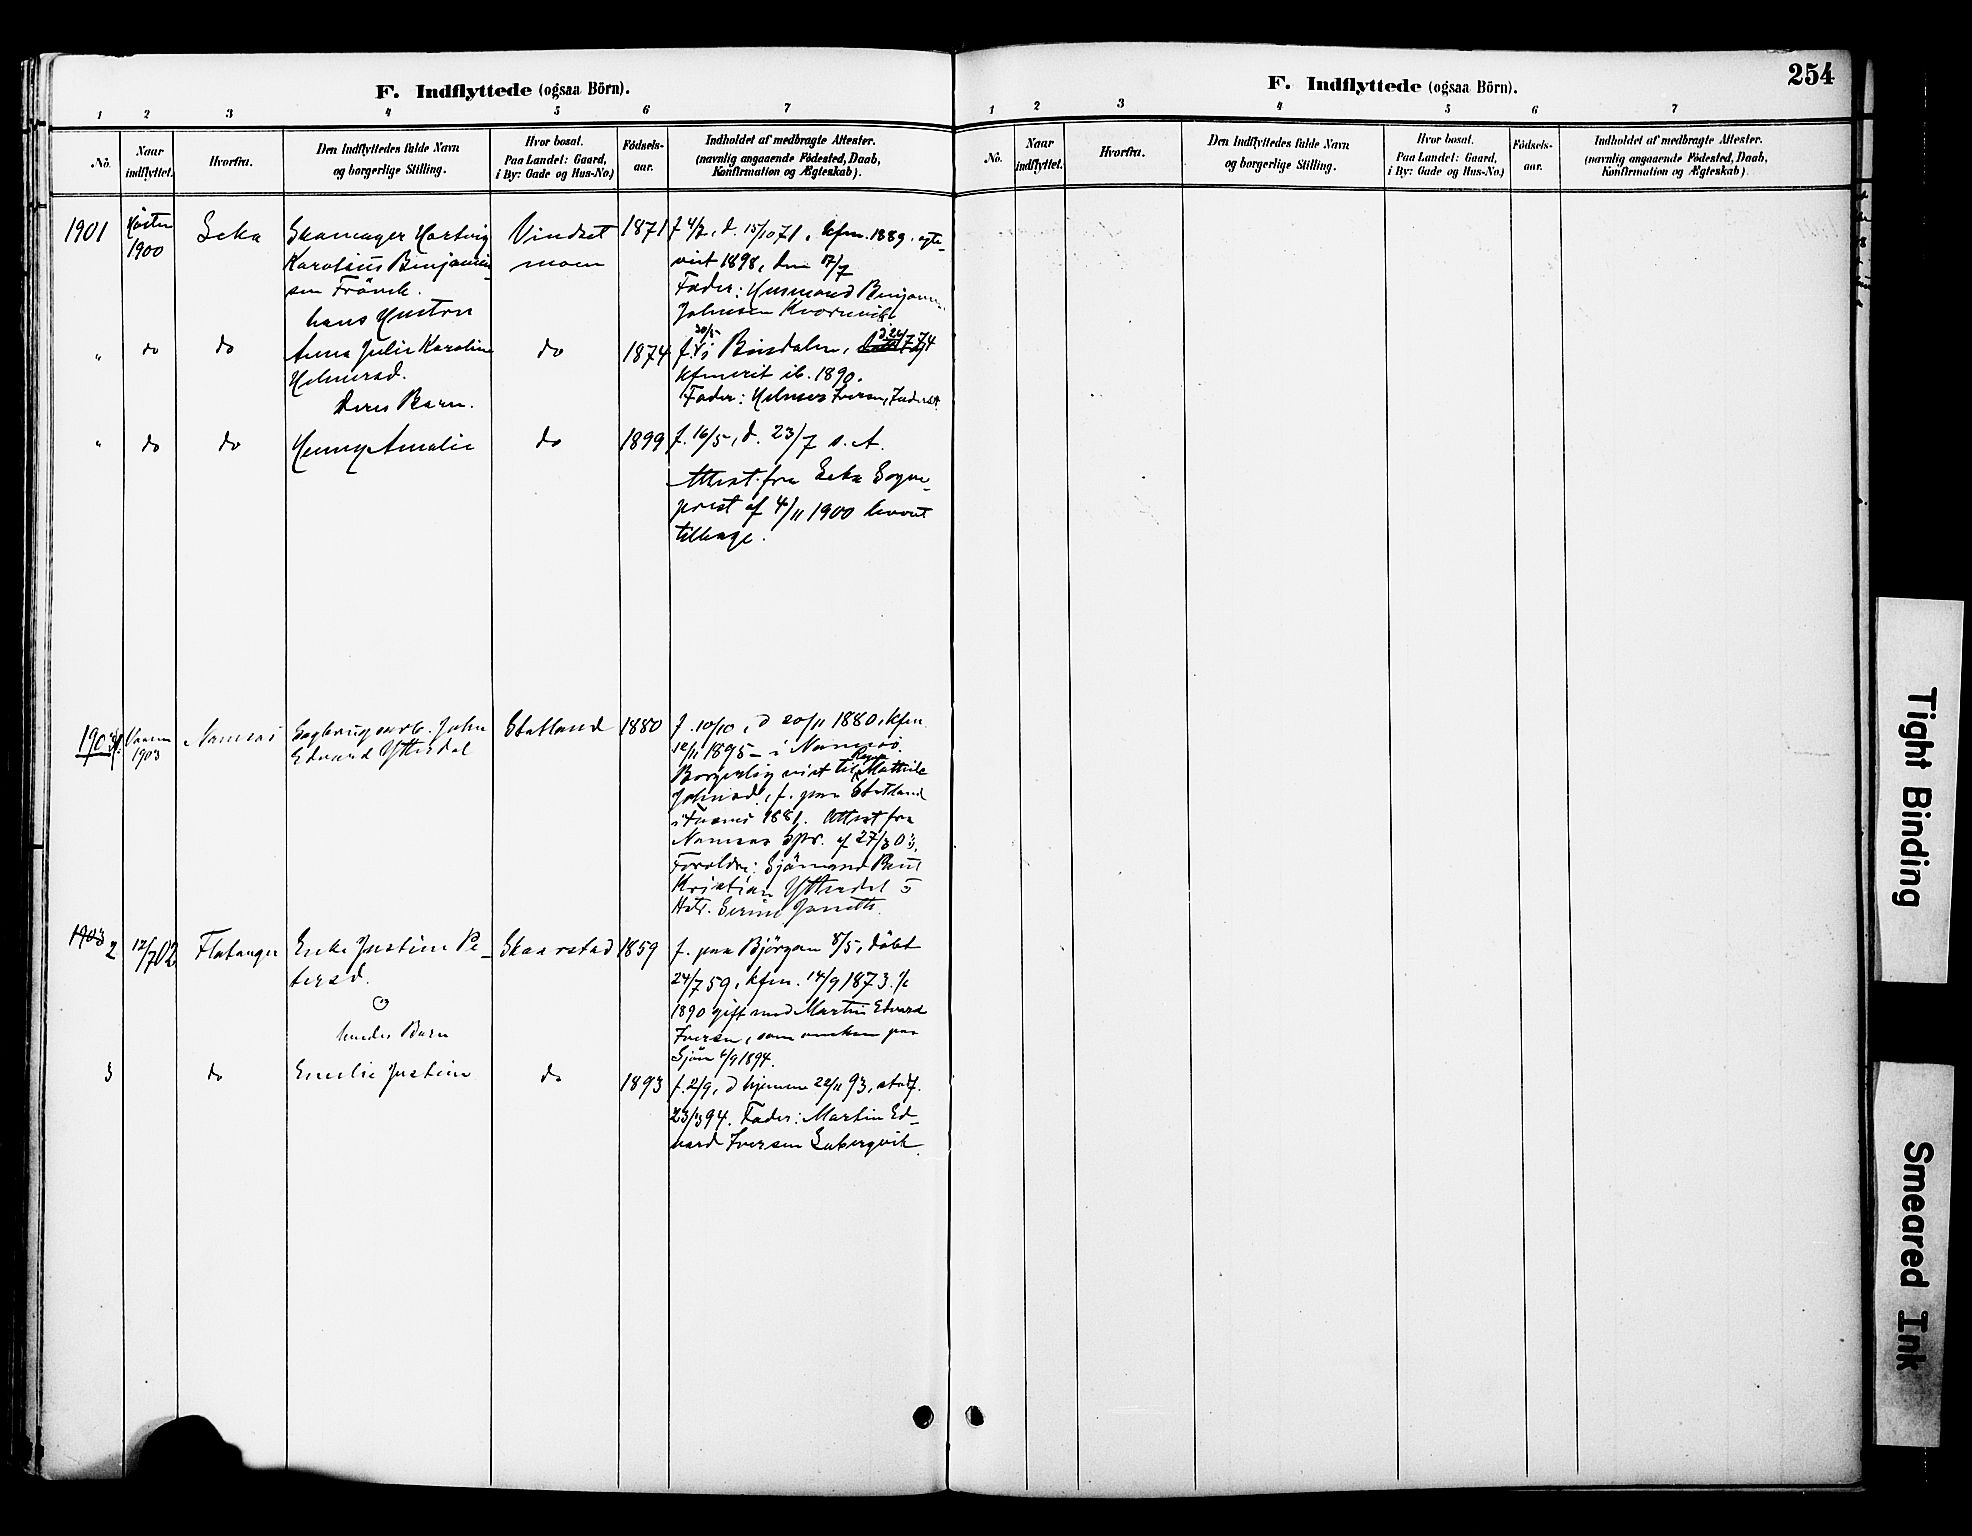 F. Indflyttede (ogsaa Börn).
1 2 3 4 5 6 7
No.
Naar indflyttet.
Hvorfra.
Den Indflyttedes fulde Navn
og borgerlige Stilling.
Hvor bosat.
Paa Landet: Gaard,
i By: Gade og Hus-No.)
Födsels-
aar.
Indholdet af medbragte Attester.
(navnlig angaaende Födested, Daab,
Konfirmation og Ægteskab).
1901
Høsten
1900
Leka
Skomager Hartvig
Karolius Benjamin-
sen Frövik.
hans Hustru
Vindset
moen
1871
f 4/2, d. 15/10 71, kfm. 1889, egte-
viet 1898, den 17/7
Fader: Husmand Benjamin
Johnsen Kvernvik
" do do
Anna Julie Karoline
Helmersd.
deres Barn.
do
1874
f. 20/5 i Bindalen, d 26/7 74
kfmerit ib. 1890.
Fader: Helmer Iversen,
" do do
Henny Amalie
do
1899
f. 16/5, d. 23/7 s. A.
Attest fra Leka Sogne-
prest af 4/11 1900 levert
tilbage.
1903
Vaaren
1903
Namsos
Sagbrugsarb. John
Edvard Ytterdal
Statland
1880
f. 10/10, d 20/11 1880, kfm.
12/11 1895 - i Namsos.
Borgerlig viet til Mathilde
Johnsd., f. paa Statland
i Fosnes 1881. Attest fra
Namsos Spr. af 27/3 03.
Foreldre: Sjömand Paul
Kristian Ytterdal &
Hstr. Serine Janette.
1903
2
12/7 02
Flatanger
Enke Justine Pe-
tersd.
hendes Barn
Skaarstad
1859
f. paa Björgan 8/5, döbt
24/7 59, kfm. 14/9 1873.
1890 gift med Martin Edvard
Iversen, som omkom paa
Sjöen 6/9 1894.
3
do
Emelie Justine
do
1893
f. 2/9, d hjemme 22/11 93, stadf.
23/3 94. Fader: Martin Ed-
vard Iversen
F. Indflyttede (ogsaa Börn).
254
1 2 3 4 5 6 7
No.
Naar
indflyttet.
Hvorfra.
Den Indflyttedes fulde Navn
og borgerlige Stilling.
Hvor bosat.
Paa Landet: Gaard,
i By: Gade og Hus-No.)
Födsels-
aar.
Indholdet af medbragte Attester.
(navnlig angaaende Födested, Daab,
Konfirmation og Ægteskab).
Tight Binding
Smeared Ink